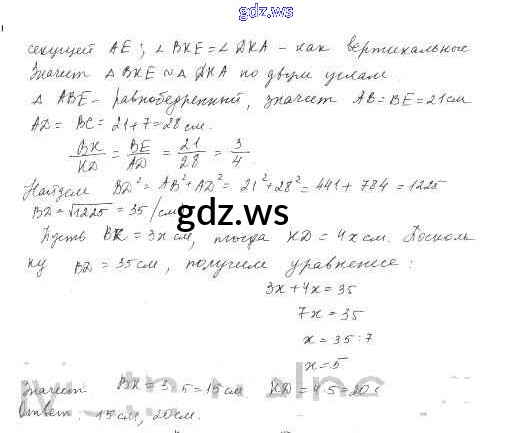 gdz.ws
секущей AE; ∠BKE = ∠DKA – как вертикальные
Значит △BKE ∾ △DKA по двум углам.
△ ABE – равнобедренный, значит AB = BE = 21см
AD = BC = 21+7 = 28 см.
BK/KD = BE/AD = 21/28 = 3/4
Найдем BD² = AB² + AD² = 21² + 28² = 441 + 784 = 1225
BD = √1225 = 35 (см)
gdz.ws
Пусть BK = 3x см, тогда KD = 4x см. Посколь
ку BD = 35 см, получим уравнение:
3x + 4x = 35
7x = 35
x = 35 : 7
x = 5
Значит BK = 3·5 = 15 см KD = 4·5 = 20 с
Ответ: 15 см, 20 см.